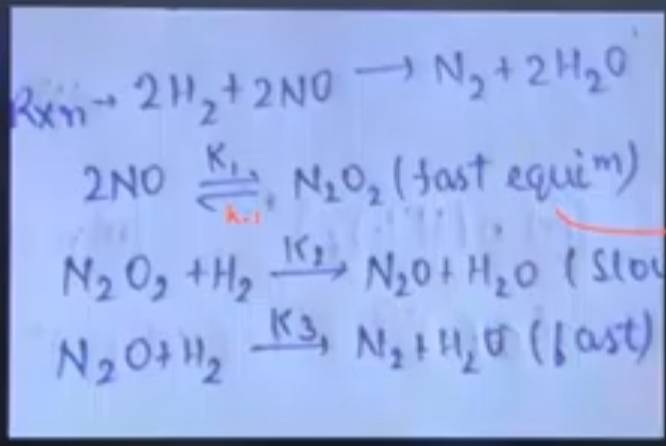 Rxn→ 2H₂ + 2NO → N₂ + 2H₂O
2NO ⇌ N₂O₂ (fast equiᵐ) K₁ k-1
N₂O₂ + H₂ —K₂→ N₂O + H₂O (Slow
N₂O + H₂ —K₃→ N₂ + H₂O (fast)